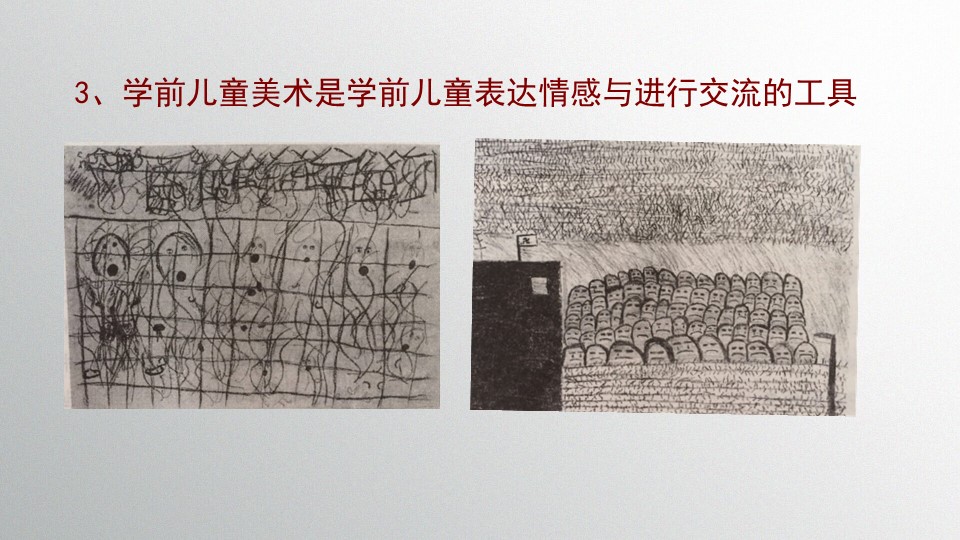 3、学前儿童美术是学前儿童表达情感与进行交流的工具